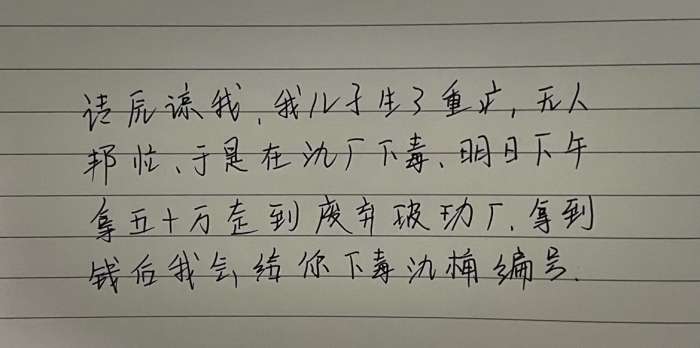 请原谅我,我儿子生了重疒,无人
邦忙、于是在氿厂下毒、明日下午
拿五十万走到废弃玻功厂,拿到
钱后我会给你下毒氿桶编号.